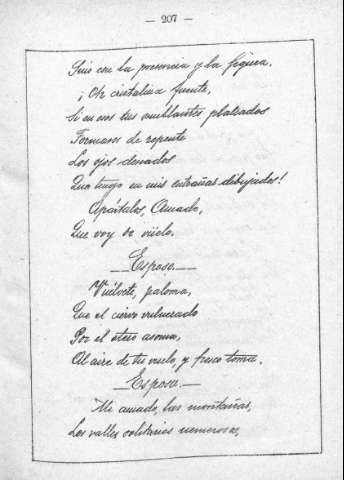 — 207 —
Sino con la presencia y la figura.
¡Oh cristalina fuente,
Si en esos tus semblantes plateados
Formases de repente
Los ojos deseados
Que tengo en mis entrañas dibujados!
Apártalos, Amado,
Que voy de vuelo.
—Esposo.—
Vuélvete, paloma,
Que el ciervo vulnerado
Por el otero asoma,
Al aire de tu vuelo, y fresco toma.
—Esposa.—
Mi amado, las montañas,
Los valles solitarios nemorosos,